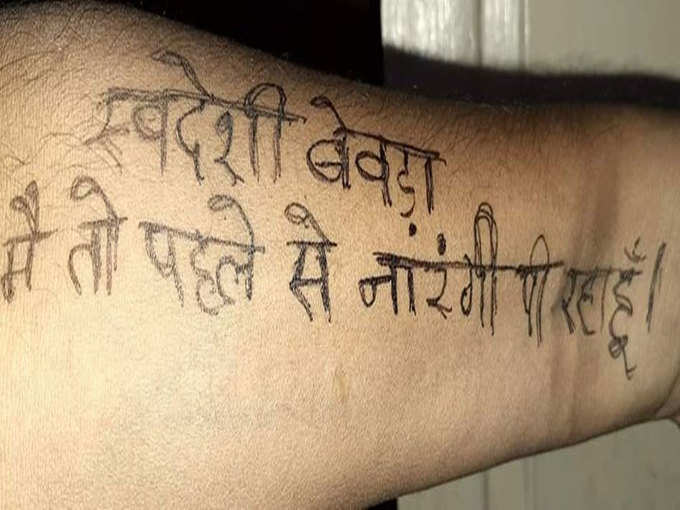 स्वदेशी बेवड़ा
मै तो पहले से नारंगी पी रहा हूँ।